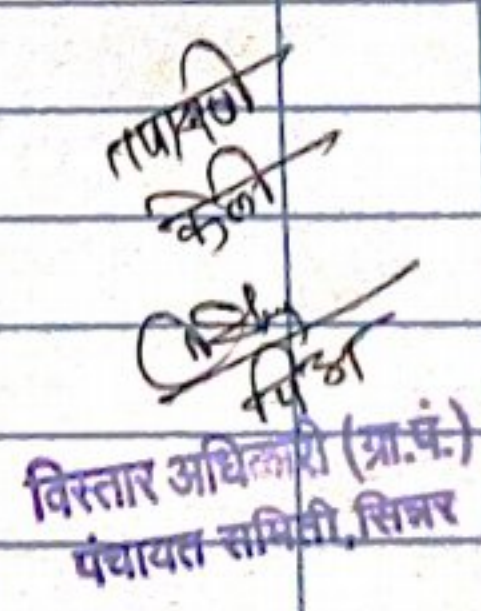 तपासणी
केली
विस्तार अधिकारी (ग्रा.पं.)
पंचायत समिती, सिन्नर